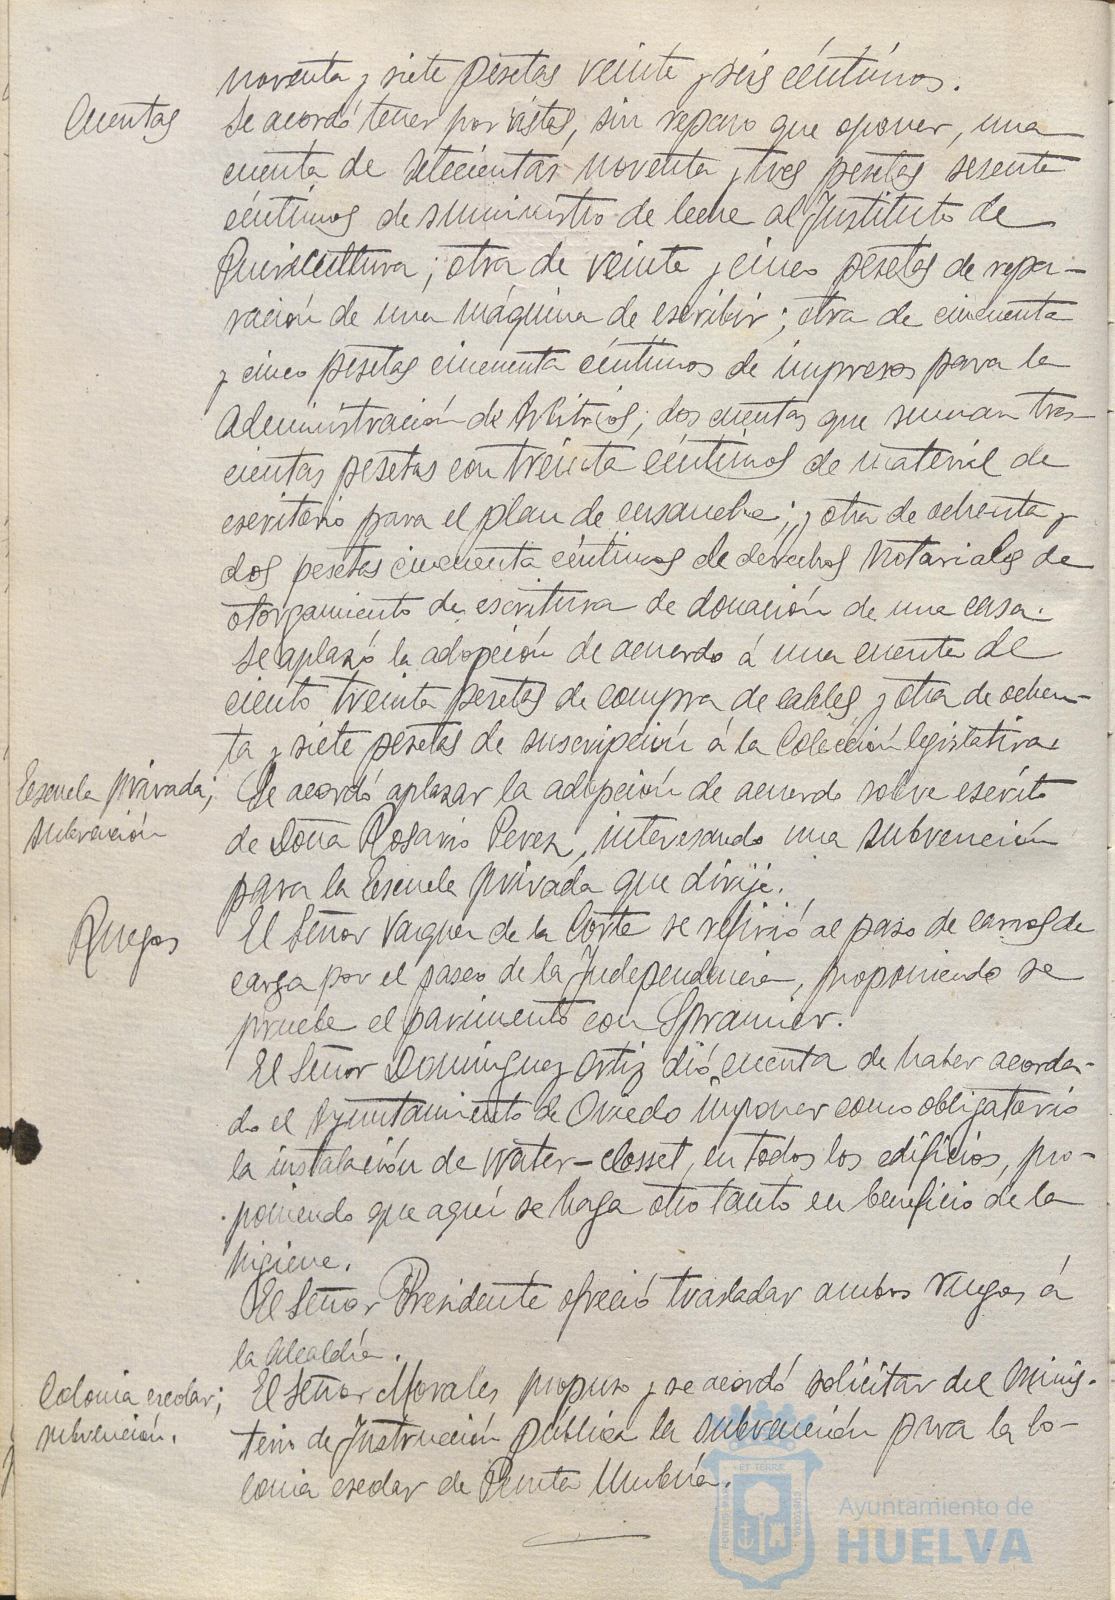 noventa y siete pesetas veinte y seis céntimos.
Cuentas
Se acordó tener por vistas, sin reparo que oponer, una
cuenta de setecientas noventa y tres pesetas sesenta
céntimos de suministro de leche al Instituto de
Puericultura; otra de veinte y cinco pesetas de repa-
ración de una máquina de escribir; otra de cincuenta
y cinco pesetas cincuenta céntimos de impresos para la
Administración de Arbitrios; dos cuentas que suman tres-
cientas pesetas con treinta céntimos de material de
escritorio para el plan de ensanche; y otra de ochenta y
dos pesetas cincuenta céntimos de derechos Notariales de
otorgamiento de escritura de donación de una casa.
Se aplazó la adopción de acuerdo á una cuenta de
ciento treinta pesetas de compra de cables y otra de ochen-
ta y siete pesetas de suscripción á la Colección legislativa.
Escuela privada;
subvención
Se acordó aplazar la adopción de acuerdo sobre escrito
de Doña Rosario Perez, interesando una subvención
para la Escuela privada que dirije.
Ruegos
El Señor Vazquez de la Corte se refirió al paso de carros de
carga por el paseo de la Independencia, proponiendo se
pruebe el pavimento con Spramier.
El Señor Dominguez Ortiz dió cuenta de haber acorda-
do el Ayuntamiento de Oviedo imponer como obligatorio
la instalación de Water-Closset, en todos los edificios, pro-
poniendo que aquí se haga otro tanto en beneficio de la
higiene.
El Señor Presidente ofreció trasladar ambos ruegos á
la Alcaldía.
Colonia escolar;
subvención.
El Señor Morales propuso y se acordó solicitar del Minis-
terio de Instrucción pública la subvención para la Co-
lonia escolar de Punta Umbría.
Ayuntamiento de
HUELVA